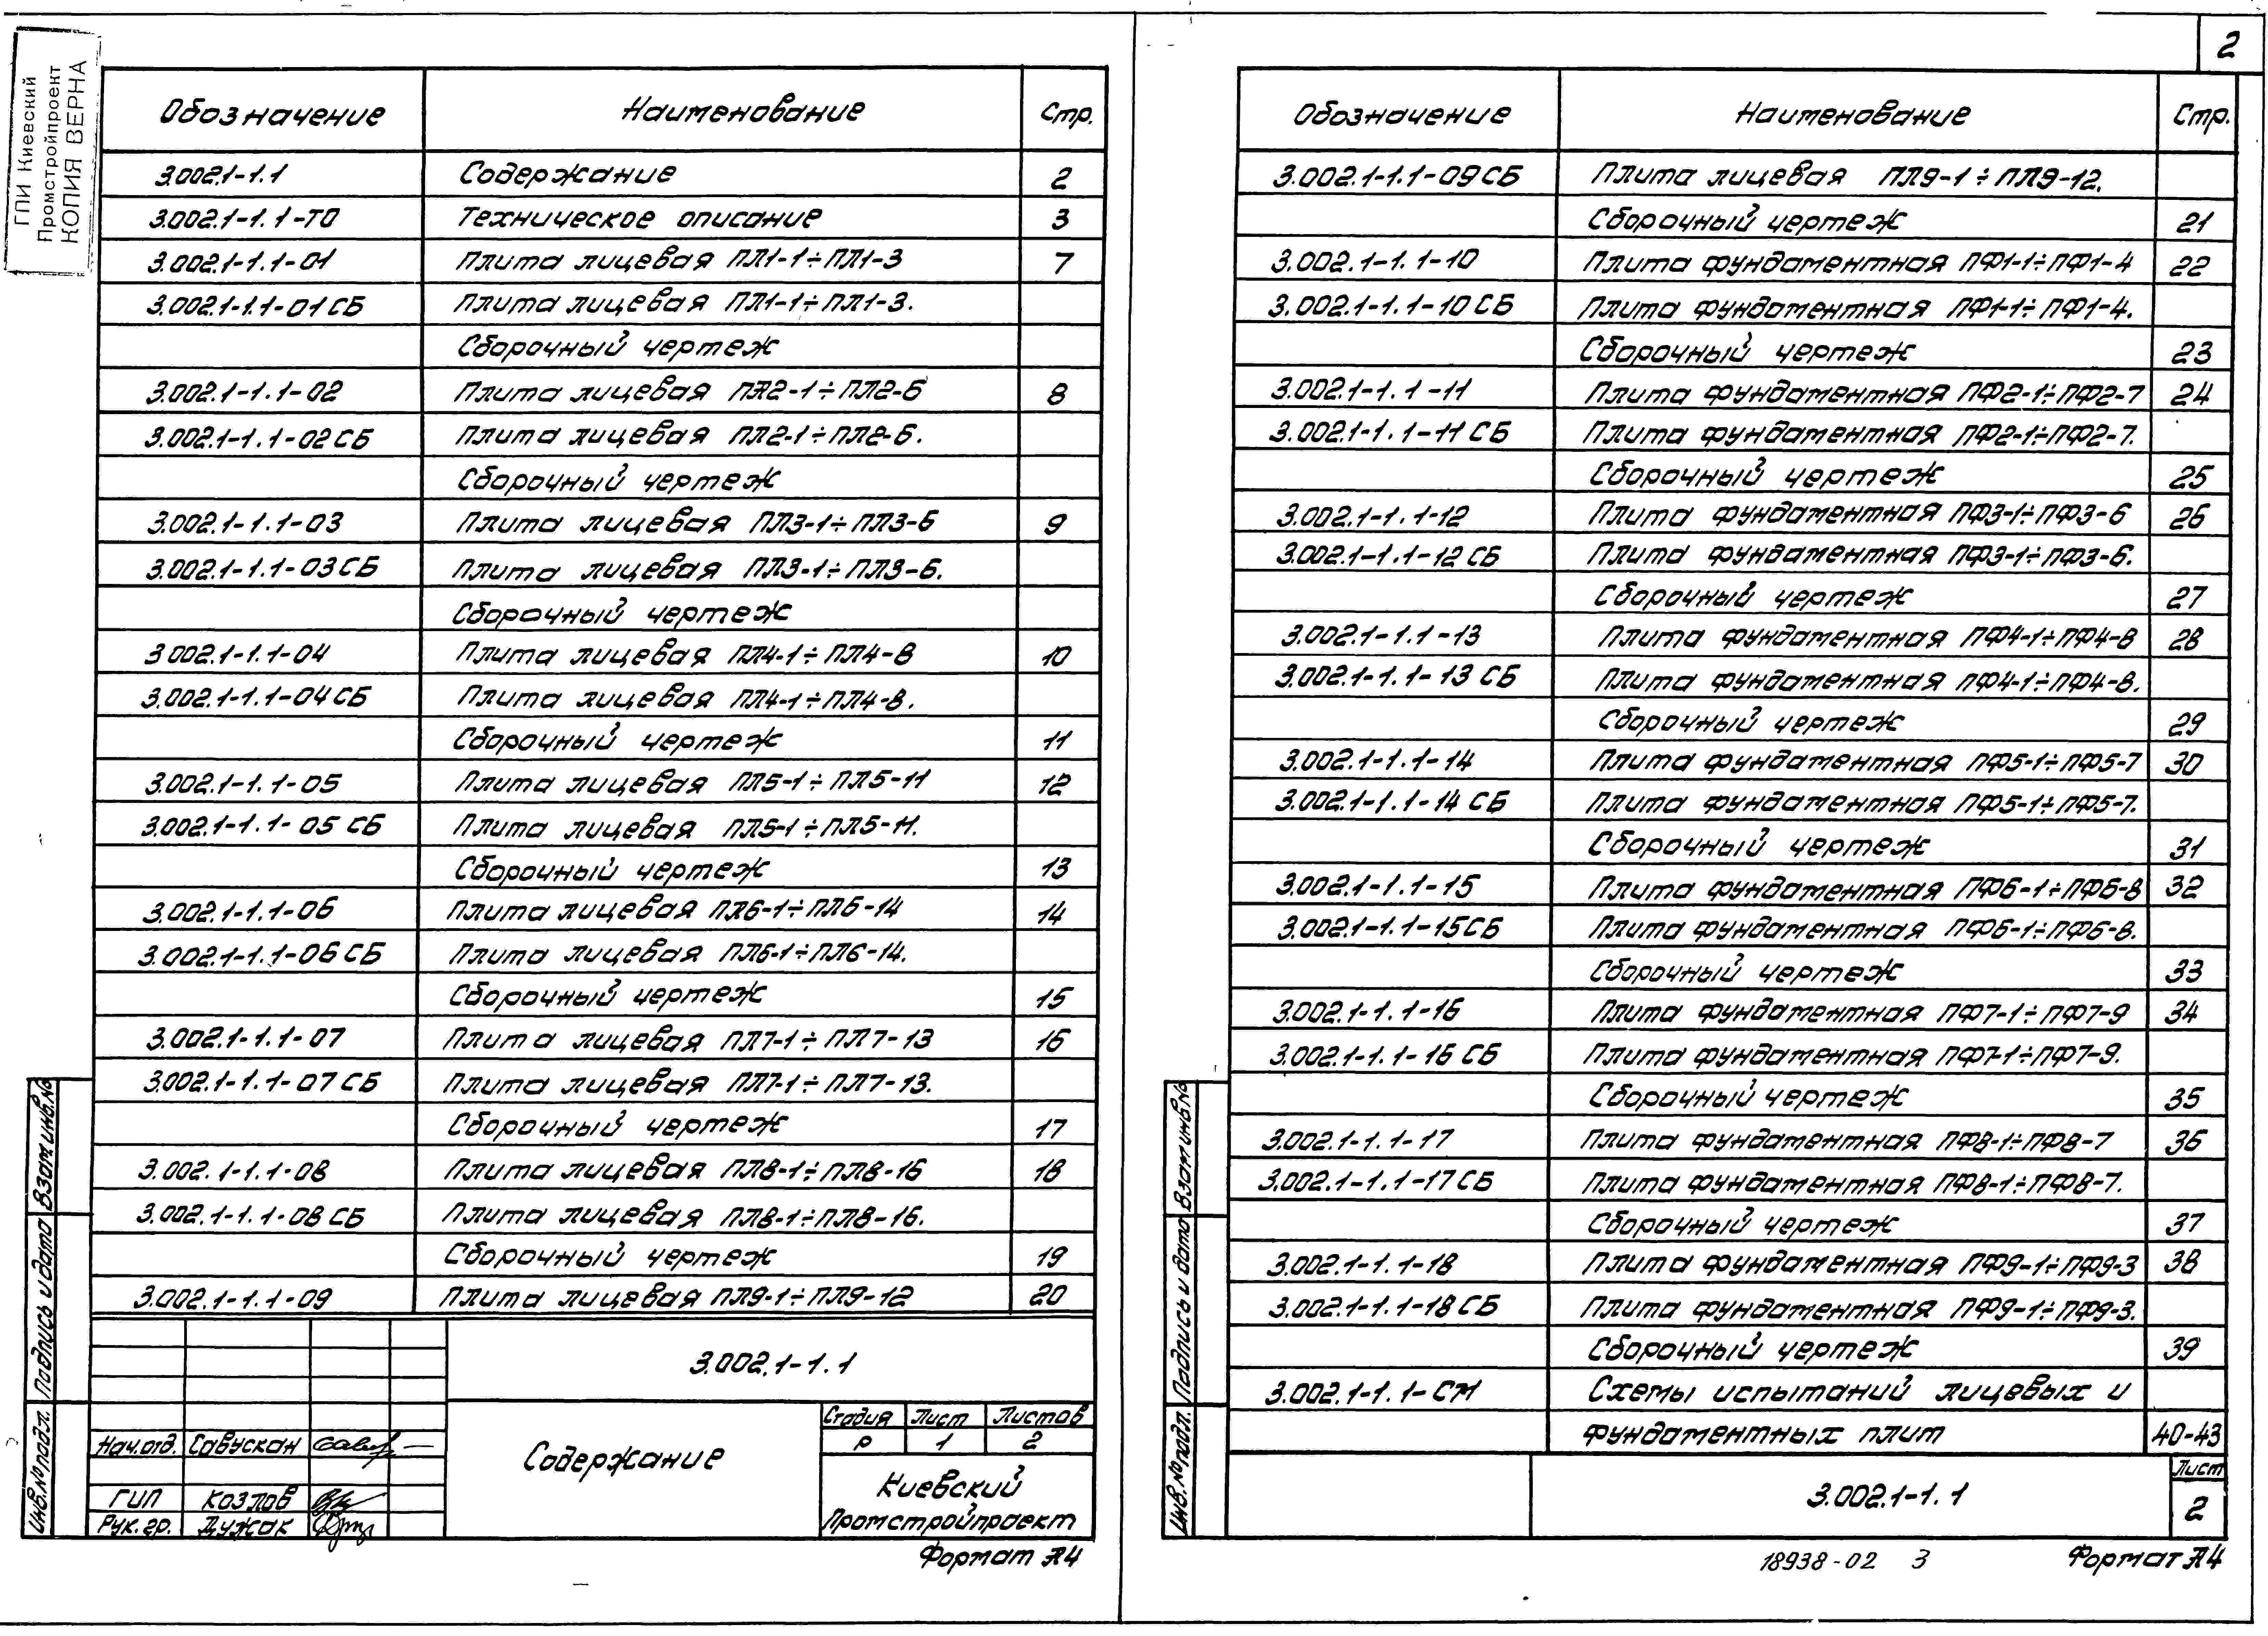 ГПИ Киевский
Промстройпроект
КОПИЯ ВЕРНА
Обозначение Наименование Стр.
3.002.1-1.1 Содержание 2
3.002.1-1.1-ТО Техническое описание 3
3.002.1-1.1-01 Плита лицевая ПЛ1-1÷ПЛ1-3 7
3.002.1-1.1-01СБ Плита лицевая ПЛ1-1÷ПЛ1-3.
Сборочный чертеж
3.002.1-1.1-02 Плита лицевая ПЛ2-1÷ПЛ2-6 8
3.002.1-1.1-02СБ Плита лицевая ПЛ2-1÷ПЛ2-6.
Сборочный чертеж
3.002.1-1.1-03 Плита лицевая ПЛ3-1÷ПЛ3-6 9
3.002.1-1.1-03СБ Плита лицевая ПЛ3-1÷ПЛ3-6.
Сборочный чертеж
3 002.1-1.1-04 Плита лицевая ПЛ4-1÷ПЛ4-8 10
3.002.1-1.1-04СБ Плита лицевая ПЛ4-1÷ПЛ4-8.
Сборочный чертеж 11
3.002.1-1.1-05 Плита лицевая ПЛ5-1÷ПЛ5-11 12
3.002.1-1.1-05 СБ Плита лицевая ПЛ5-1÷ПЛ5-11.
Сборочный чертеж 13
3.002.1-1.1-06 Плита лицевая ПЛ6-1÷ПЛ6-14 14
3.002.1-1.1-06СБ Плита лицевая ПЛ6-1÷ПЛ6-14.
Сборочный чертеж 15
3.002.1-1.1-07 Плита лицевая ПЛ7-1÷ПЛ7-13 16
3.002.1-1.1-07СБ Плита лицевая ПЛ7-1÷ПЛ7-13.
Сборочный чертеж 17
3.002.1-1.1-08 Плита лицевая ПЛ8-1÷ПЛ8-16 18
3.002.1-1.1-08СБ Плита лицевая ПЛ8-1÷ПЛ8-16.
Сборочный чертеж 19
3.002.1-1.1-09 Плита лицевая ПЛ9-1÷ПЛ9-12 20
3.002.1-1.1
Содержание
Стадия Лист Листов
Р 1 2
Нач.отд. Савускан
ГИП Козлов
Рук.гр. Дужак
Киевский
Промстройпроект
Формат А4
Инв.№подл. Подпись и дата Взам инв.№
2
Обозначение Наименование Стр.
3.002.1-1.1-09СБ Плита лицевая ПЛ9-1÷ПЛ9-12.
Сборочный чертеж 21
3.002.1-1.1-10 Плита фундаментная ПФ1-1÷ПФ1-4 22
3.002.1-1.1-10СБ Плита фундаментная ПФ1-1÷ПФ1-4.
Сборочный чертеж 23
3.002.1-1.1-11 Плита фундаментная ПФ2-1÷ПФ2-7 24
3.002.1-1.1-11СБ Плита фундаментная ПФ2-1÷ПФ2-7.
Сборочный чертеж 25
3.002.1-1.1-12 Плита фундаментная ПФ3-1÷ПФ3-6 26
3.002.1-1.1-12СБ Плита фундаментная ПФ3-1÷ПФ3-6.
Сборочный чертеж 27
3.002.1-1.1-13 Плита фундаментная ПФ4-1÷ПФ4-8 28
3.002.1-1.1-13 СБ Плита фундаментная ПФ4-1÷ПФ4-8.
Сборочный чертеж 29
3.002.1-1.1-14 Плита фундаментная ПФ5-1÷ПФ5-7 30
3.002.1-1.1-14 СБ Плита фундаментная ПФ5-1÷ПФ5-7.
Сборочный чертеж 31
3.002.1-1.1-15 Плита фундаментная ПФ6-1÷ПФ6-8 32
3.002.1-1.1-15СБ Плита фундаментная ПФ6-1÷ПФ6-8.
Сборочный чертеж 33
3.002.1-1.1-16 Плита фундаментная ПФ7-1÷ПФ7-9 34
3.002.1-1.1-16 СБ Плита фундаментная ПФ7-1÷ПФ7-9.
Сборочный чертеж 35
3.002.1-1.1-17 Плита фундаментная ПФ8-1÷ПФ8-7 36
3.002.1-1.1-17СБ Плита фундаментная ПФ8-1÷ПФ8-7.
Сборочный чертеж 37
3.002.1-1.1-18 Плита фундаментная ПФ9-1÷ПФ9-3 38
3.002.1-1.1-18СБ Плита фундаментная ПФ9-1÷ПФ9-3.
Сборочный чертеж 39
3.002.1-1.1-СМ Схемы испытаний лицевых и
фундаментных плит 40-43
3.002.1-1.1
Лист
2
Инв.№подл. Подпись и дата Взам инв№
18938-02 3
Формат А4